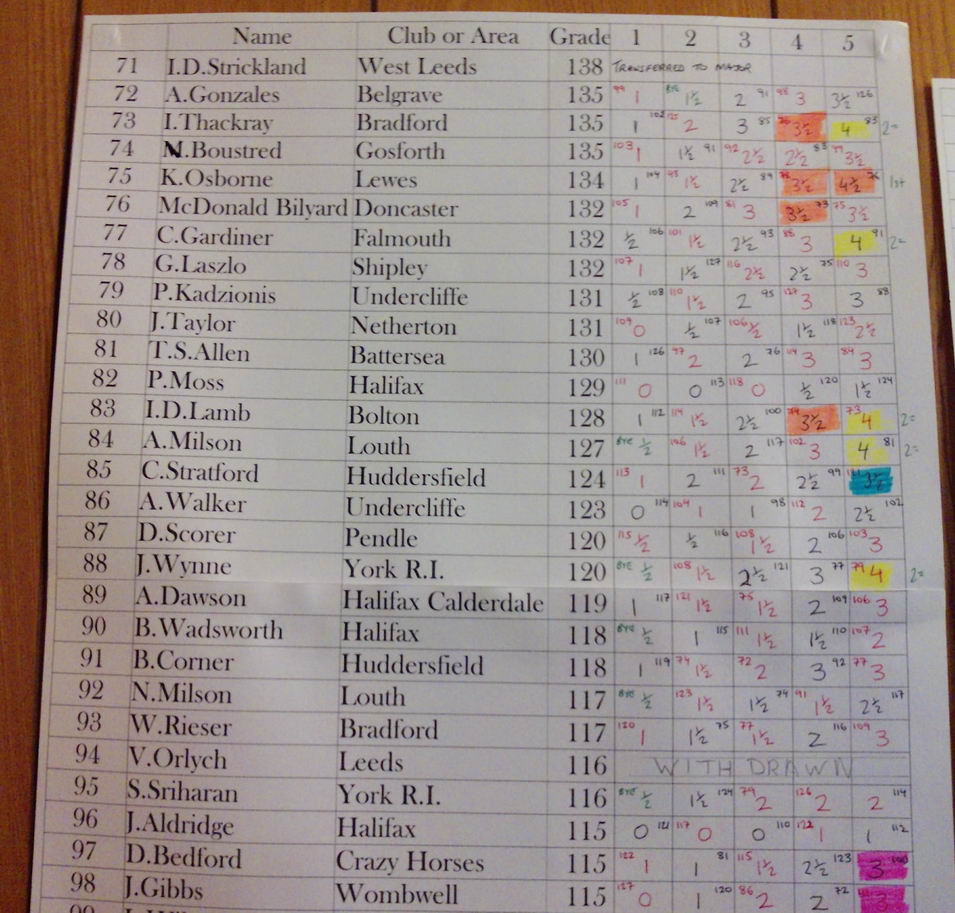 Name Club or Area Grade 1 2 3 4 5
71 I.D.Strickland West Leeds 138 TRANSFERRED TO MAJOR
72 A.Gonzales Belgrave 135 99 1 BYE 1½ 2 91 98 3 3½ 126
73 I.Thackray Bradford 135 1 102 125 2 3 85 76 3½ 4 83 2=
74 N.Boustred Gosforth 135 103 1 1½ 91 92 2½ 2½ 83 99 3½
75 K.Osborne Lewes 134 1 104 93 1½ 2½ 89 78 3½ 4½ 76 1st
76 McDonald Bilyard Doncaster 132 105 1 2 109 81 3 3½ 73 75 3½
77 C.Gardiner Falmouth 132 ½ 106 101 1½ 2½ 93 88 3 4 91 2=
78 G.Laszlo Shipley 132 107 1 1½ 127 116 2½ 2½ 75 110 3
79 P.Kadzionis Undercliffe 131 ½ 108 110 1½ 2 95 127 3 3 88
80 J.Taylor Netherton 131 109 0 ½ 107 106 ½ 1½ 118 123 2½
81 T.S.Allen Battersea 130 1 126 97 2 2 76 114 3 84 3
82 P.Moss Halifax 129 111 0 0 113 118 0 ½ 120 1½ 124
83 I.D.Lamb Bolton 128 1 112 114 1½ 2½ 100 74 3½ 73 4 2=
84 A.Milson Louth 127 BYE ½ 106 1½ 2 117 102 3 4 81 2=
85 C.Stratford Huddersfield 124 113 1 2 111 73 2 2½ 99 3½
86 A.Walker Undercliffe 123 0 114 104 1 1 98 112 2 2½ 102
87 D.Scorer Pendle 120 115 ½ ½ 116 108 1½ 2 106 103 3
88 J.Wynne York R.I. 120 BYE ½ 108 1½ 2½ 121 3 77 79 4 2=
89 A.Dawson Halifax Calderdale 119 1 117 121 1½ 75 1½ 2 109 106 3
90 B.Wadsworth Halifax 118 BYE ½ 1 115 111 1½ 1½ 110 107 2
91 B.Corner Huddersfield 118 1 119 74 1½ 72 2 3 92 77 3
92 N.Milson Louth 117 BYE ½ 123 1½ 1½ 74 91 1½ 2½ 117
93 W.Rieser Bradford 117 120 1 1½ 75 77 1½ 2 116 109 3
94 V.Orlych Leeds 116 WITHDRAWN
95 S.Sriharan York R.I. 116 BYE ½ 1½ 124 79 2 126 2 2 114
96 J.Aldridge Halifax 115 0 121 117 0 0 110 122 1 1 112
97 D.Bedford Crazy Horses 115 122 1 1 81 115 1½ 2½ 123 3 100
98 J.Gibbs Wombwell 115 127 0 1 120 86 2 2 72 3